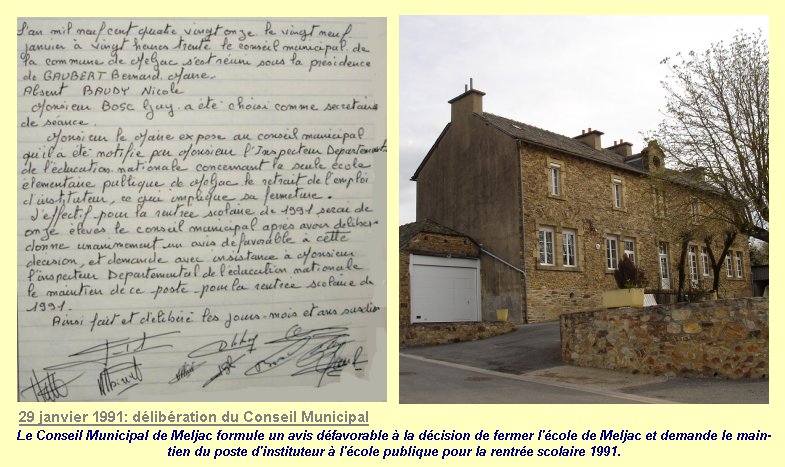 L'an mil neuf cent quatre vingt onze le vingt neuf
janvier à vingt heures trente le conseil municipal de
la commune de Meljac s'est réuni sous la présidence
de GAUBERT Bernard Maire.
Absent BAUDY Nicole
Monsieur BOSC Guy a été choisi comme secretaire
de séance.
Monsieur le Maire expose au conseil municipal
qu'il a été notifié par Monsieur l'Inspecteur Departemental
de l'éducation nationale concernant la seule école
élementaire publique de Meljac le retrait de l'emploi
d'instituteur, ce qui implique sa fermeture.
L'effectif pour la rentrée scolaire de 1991 serai de
onze élèves le conseil municipal après avoir déliberé
donne unanimement un avis défavorable à cette
decision, et demande avec insistance à Monsieur
l'inspecteur Departemental de l'éducation nationale
le maintien de ce poste pour la rentrée scolaire de
1991.
Ainsi fait et deliberé les jours mois et ans susdits
29 janvier 1991: délibération du Conseil Municipal
Le Conseil Municipal de Meljac formule un avis défavorable à la décision de fermer l'école de Meljac et demande le main-
tien du poste d'instituteur à l'école publique pour la rentrée scolaire 1991.